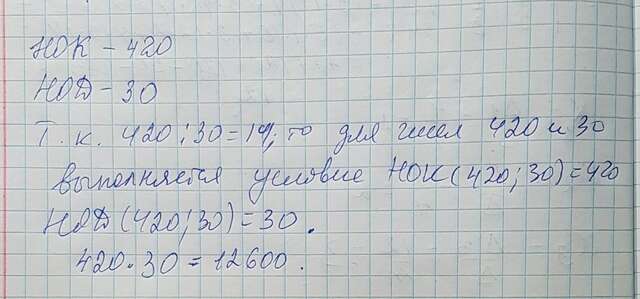 НОК – 420
НОД – 30
Т. к. 420 : 30 = 14, то для чисел 420 и 30
выполняется условие НОК(420; 30) = 420
НОД(420; 30) = 30.
420 · 30 = 12600.